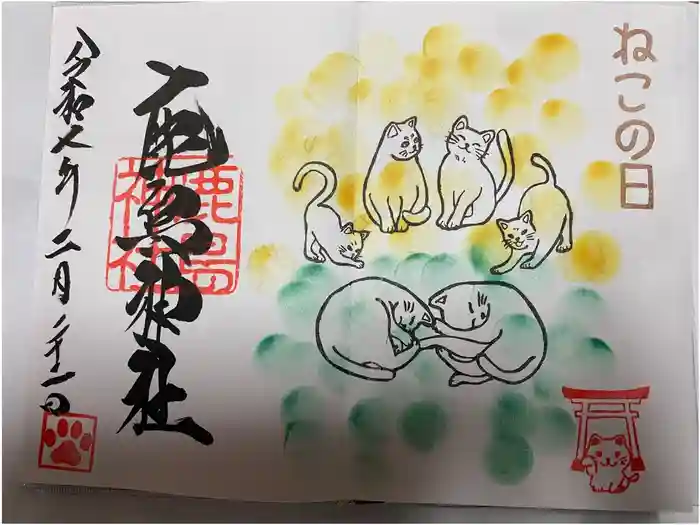 ねこの日
鹿島神社
鹿島
神社
令和七年二月二十一日